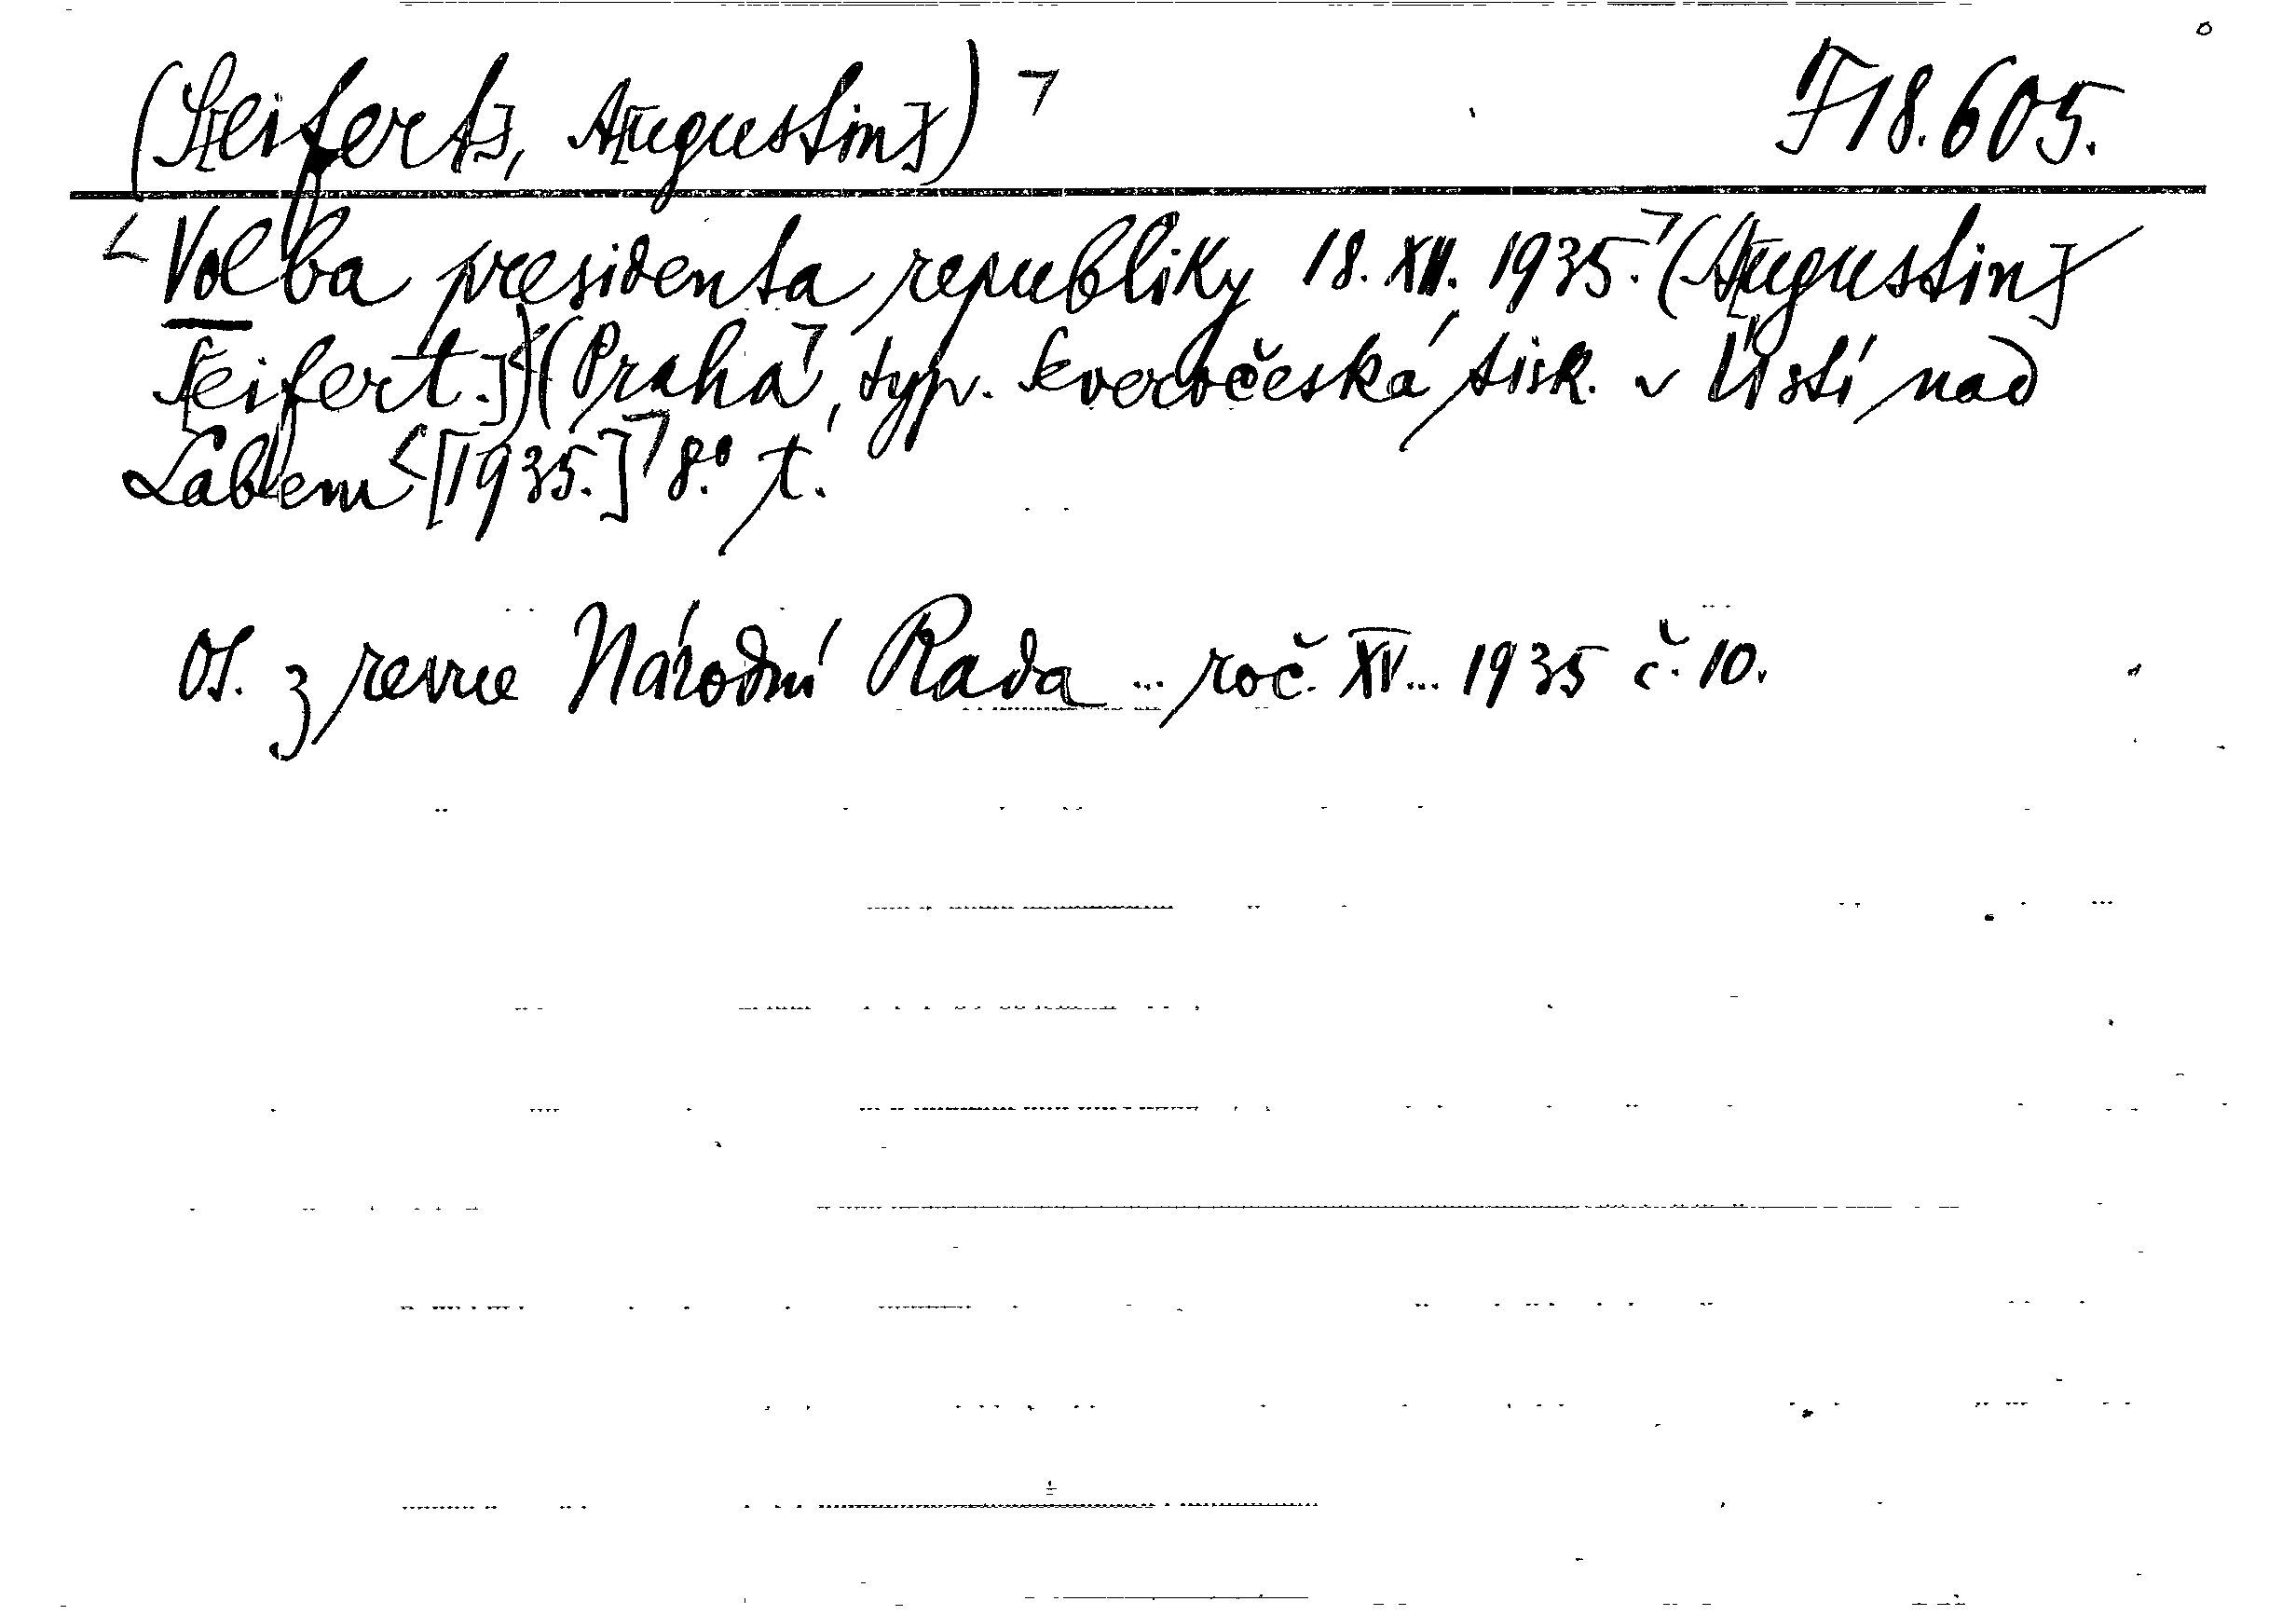 (S[eifert], A[ugustin]) ㄱ F 18.605.
<Volba presidenta republiky 18. XII. 1935.ㄱ (A[ugustin]
S[eifert.]) <(Prahaㄱ, typ. Severočeská tisk. v Ústí nad
Labem <[1935.]ㄱ 8.° t.
Ot. z revue Národní Rada ... roč. XV... 1935 č. 10.